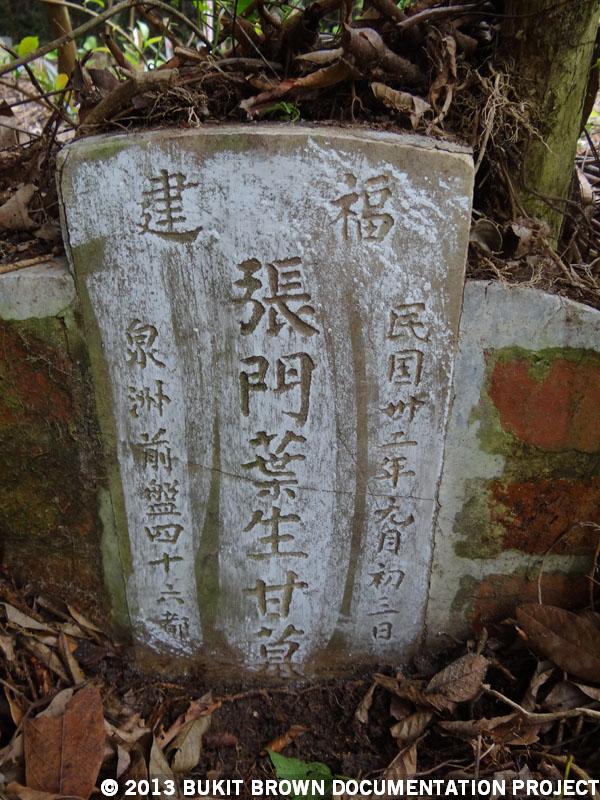 福建
民国卅二年九月初三日
張門葉生甘墓
泉洲前盤四十六都
© 2013 BUKIT BROWN DOCUMENTATION PROJECT